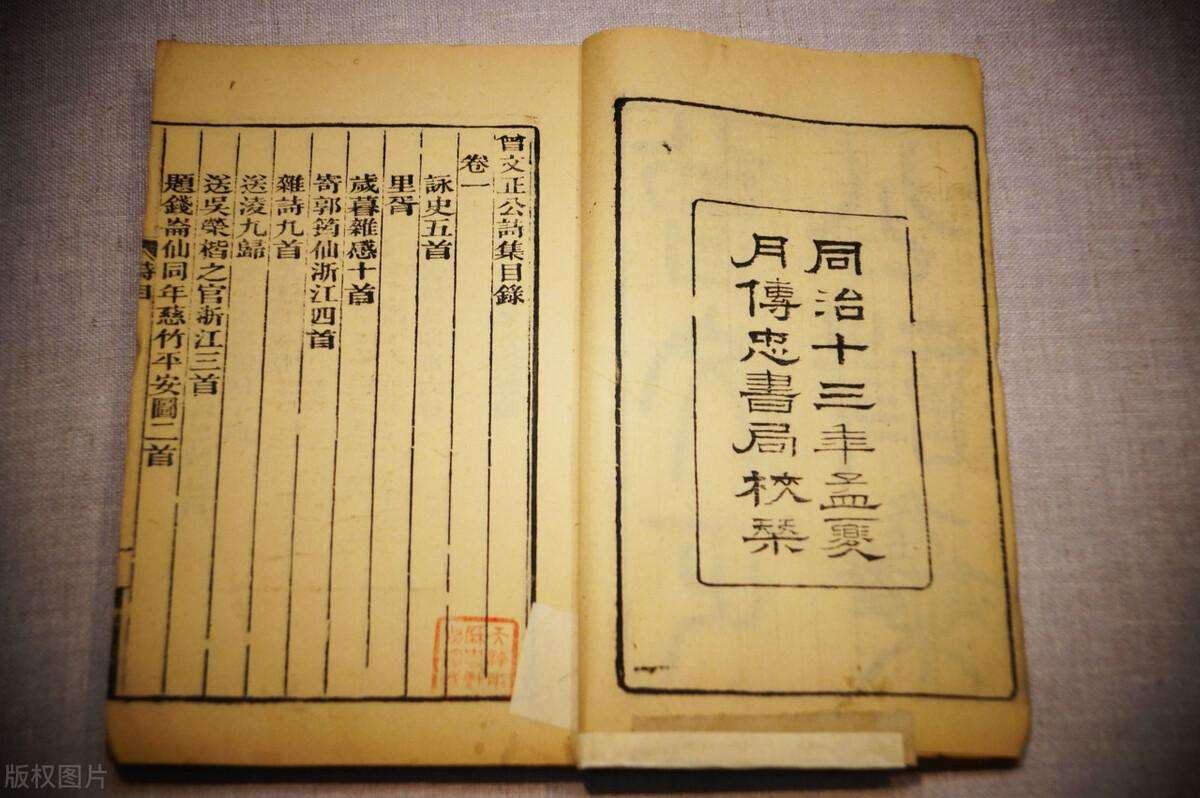 同治十三年孟夏
月傳忠書局校栞
曾文正公詩集目錄
卷一
詠史五首
里胥
歲暮雜感十首
寄郭筠仙浙江四首
雜詩九首
送凌九歸
送吳榮楷之官浙江三首
題錢崙仙同年慈竹平安圖二首
詩目
版权图片